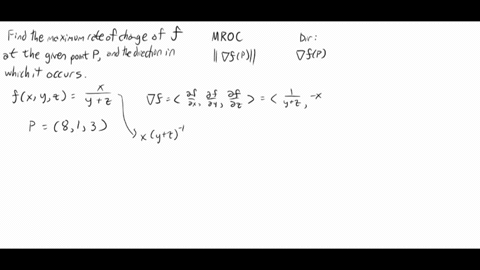 Find the maximum rate of change of f
at the given point P, and the direction in
which it occurs.
MROC
‖∇f(P)‖
Dir:
∇f(P)
f(x,y,z) = x/(y+z)
x(y+z)⁻¹
P = (8,1,3)
∇f = ⟨ ∂f/∂x, ∂f/∂y, ∂f/∂z ⟩ = ⟨ 1/(y+z), -x